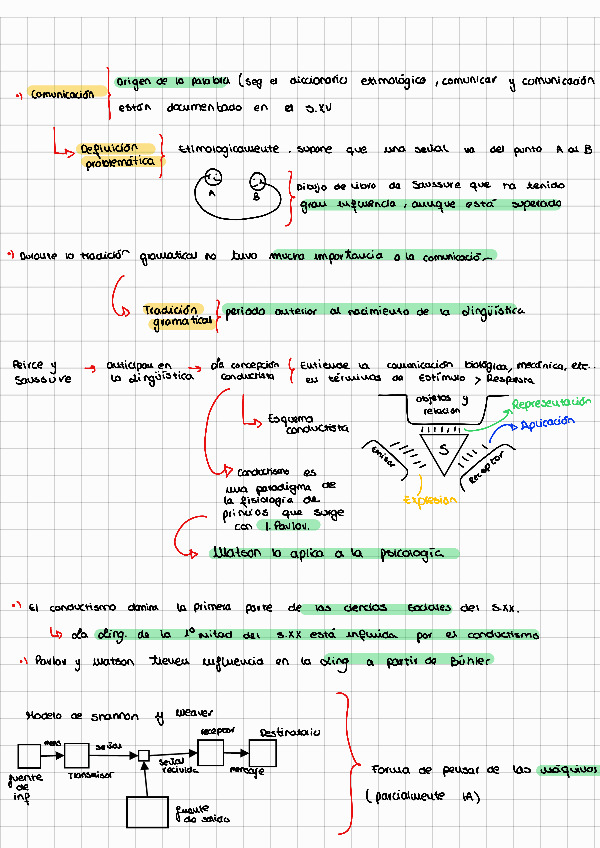 Origen de la palabra (seg el diccionario etimológico, comunicar y comunicación
•) Comunicación
están documentado en el S.XV
Definición
problemática
Etimologicamente, supone que una señal va del punto A al B
A B
Dibujo de libro de Saussure que ha tenido
gran influencia, aunque está superado
•) Durante la tradición gramatical no tuvo mucha importancia a la comunicación
Tradición
gramatical
periodo anterior al nacimiento de la lingüística
Peirce y
Saussure
anticipan en
la lingüística
la concepción
conductista
Entiende la comunicación biológica, mecánica, etc..
en términos de Estímulo > Respuesta
objetos y
relación
Representación
Aplicación
Esquema
conductista
emisor
S
receptor
Expresión
Conductismo es
una paradigma de
la fisiología de
principios que surge
con I. Pavlov.
Watson lo aplica a la psicología
•) El conductismo domina la primera parte de las ciencias sociales del S.XX.
La ling. de la 1º mitad del S.XX está influida por el conductismo
•) Pavlov y Watson tienen influencia en la ling a partir de Bühler
Modelo de Shannon y Weaver
mens señal
receptor Destinatario
fuente
de
inf
Transmisor
señal
recibida
mensaje
fuente
de
Forma de pensar de las máquinas
(parcialmente IA)